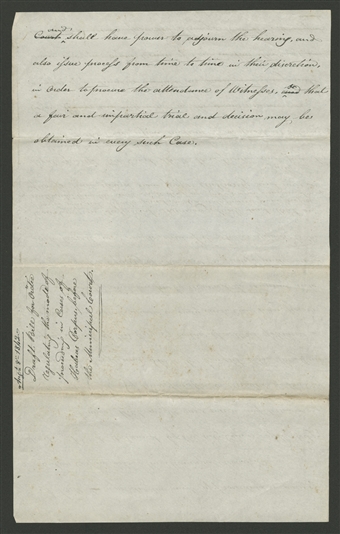 and
Courts shall have power to adjourn the hearing, and
also issue process from time to time in their discretion,
in order to procure the attendance of Witnesses, so that
a fair and impartial trial and decision may be
obtained in every such Case.
Augt 8th 1842
Draft Rule for Order
regulating the mode of
proceeding in Cases of
Habeas Corpus before
the Municipal Court.